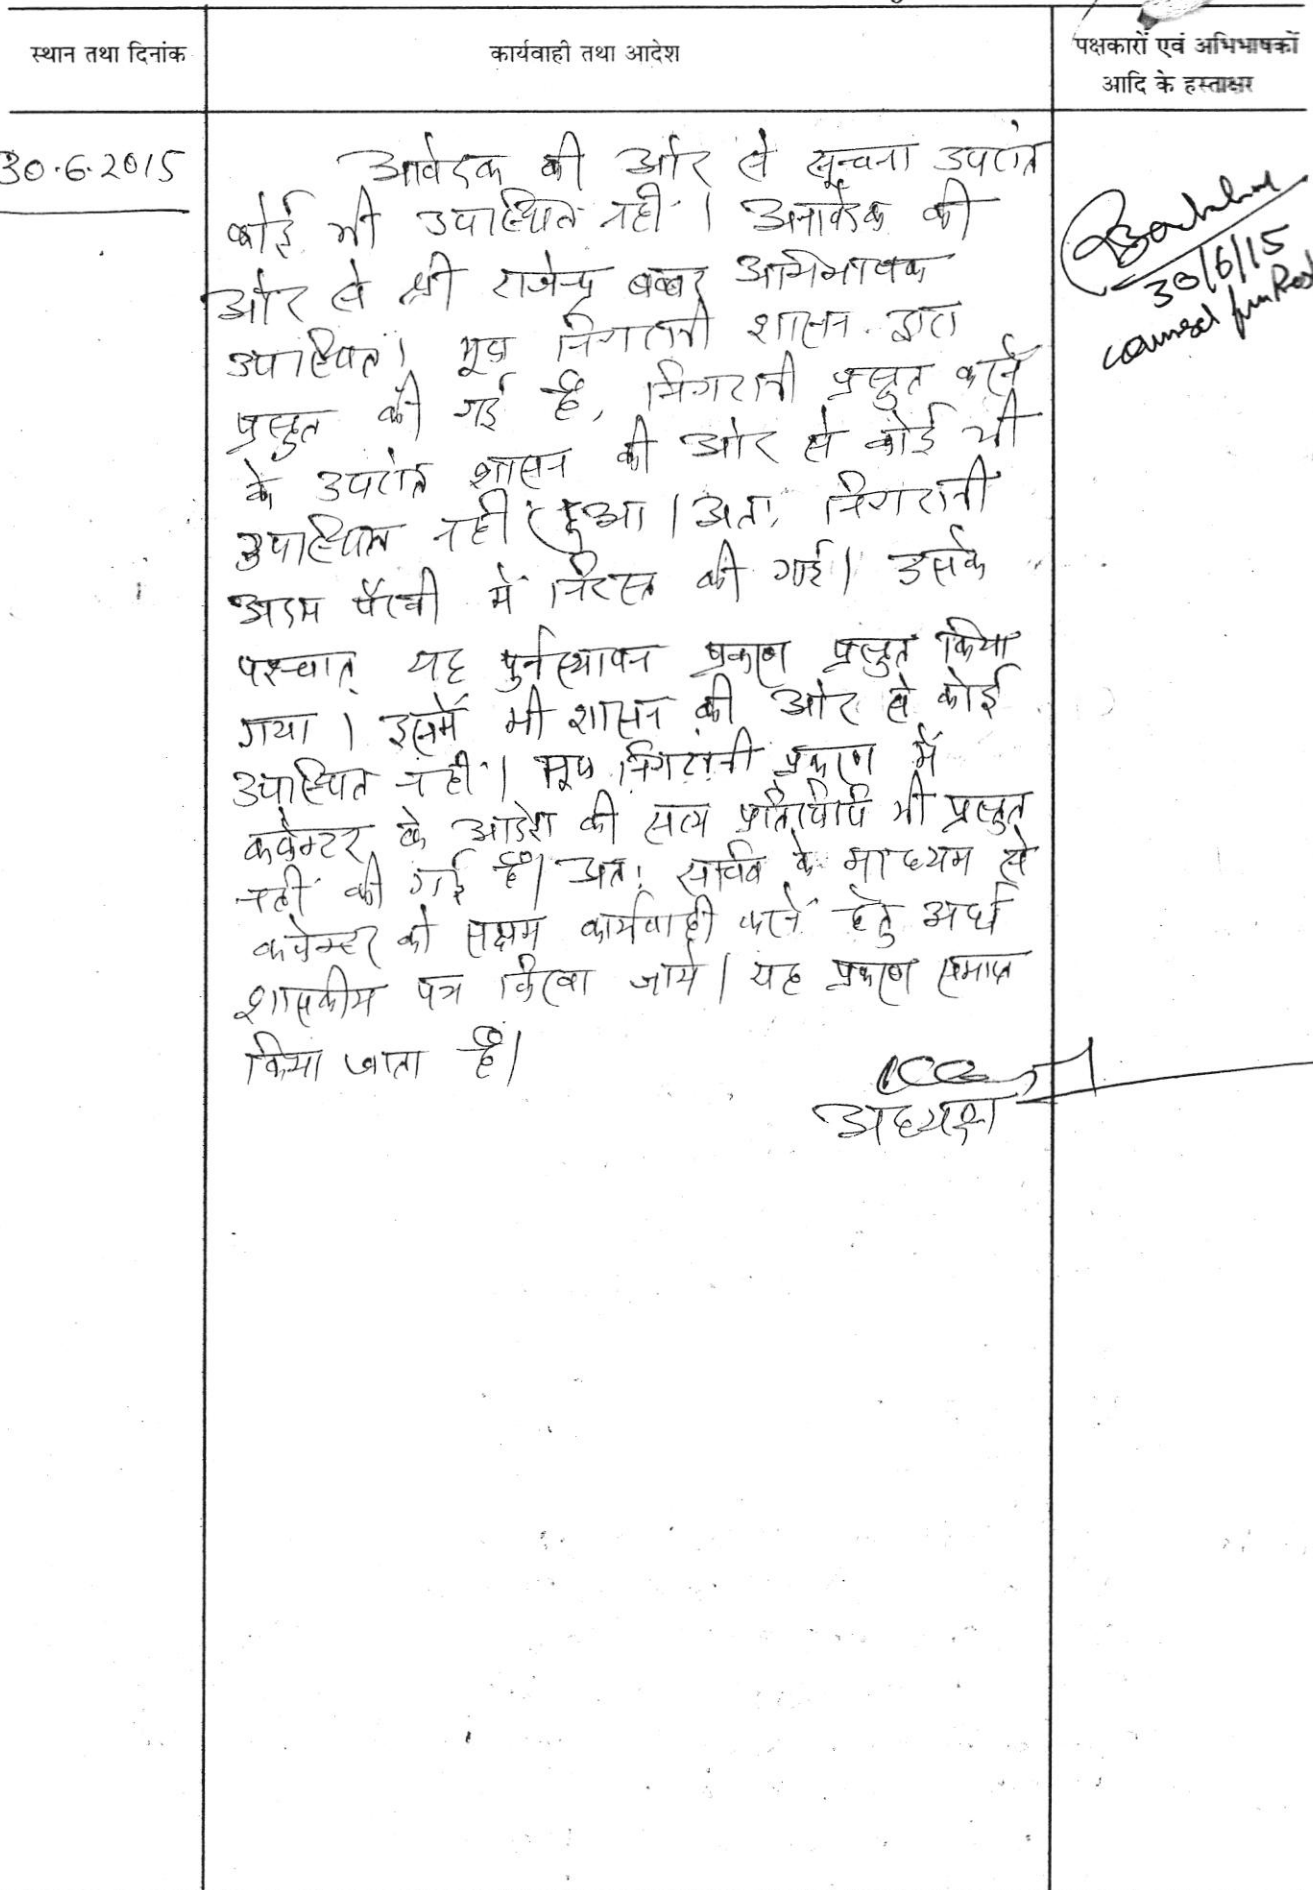 स्थान तथा दिनांक
कार्यवाही तथा आदेश
पक्षकारों एवं अभिभाषकों
आदि के हस्ताक्षर
30.6.2015
आवेदक की ओर से सूचना उपरांत
कोई भी उपस्थित नहीं । अनावेदक की
ओर से श्री राजेन्द्र बब्बर अभिभाषक
उपस्थित। मूल निगरानी शासन द्वारा
प्रस्तुत की गई है, निगरानी प्रस्तुत करने
के उपरांत शासन की ओर से कोई भी
उपस्थित नहीं हुआ । अतः निगरानी
अदम पैरवी में निरस्त की गई। उसके
पश्चात् यह पुर्नस्थापन प्रकरण प्रस्तुत किया
गया । इसमें भी शासन की ओर से कोई
उपस्थित नहीं । मूल निगरानी प्रकरण में
कलेक्टर के आदेश की सत्य प्रतिलिपि भी प्रस्तुत
नहीं की गई है। अतः सचिव के माध्यम से
कलेक्टर को सक्षम कार्यवाही करने हेतु अर्ध
शासकीय पत्र लिखा जाये । यह प्रकरण समाप्त
किया जाता है।
अध्यक्ष
30/6/15
counsel for Res